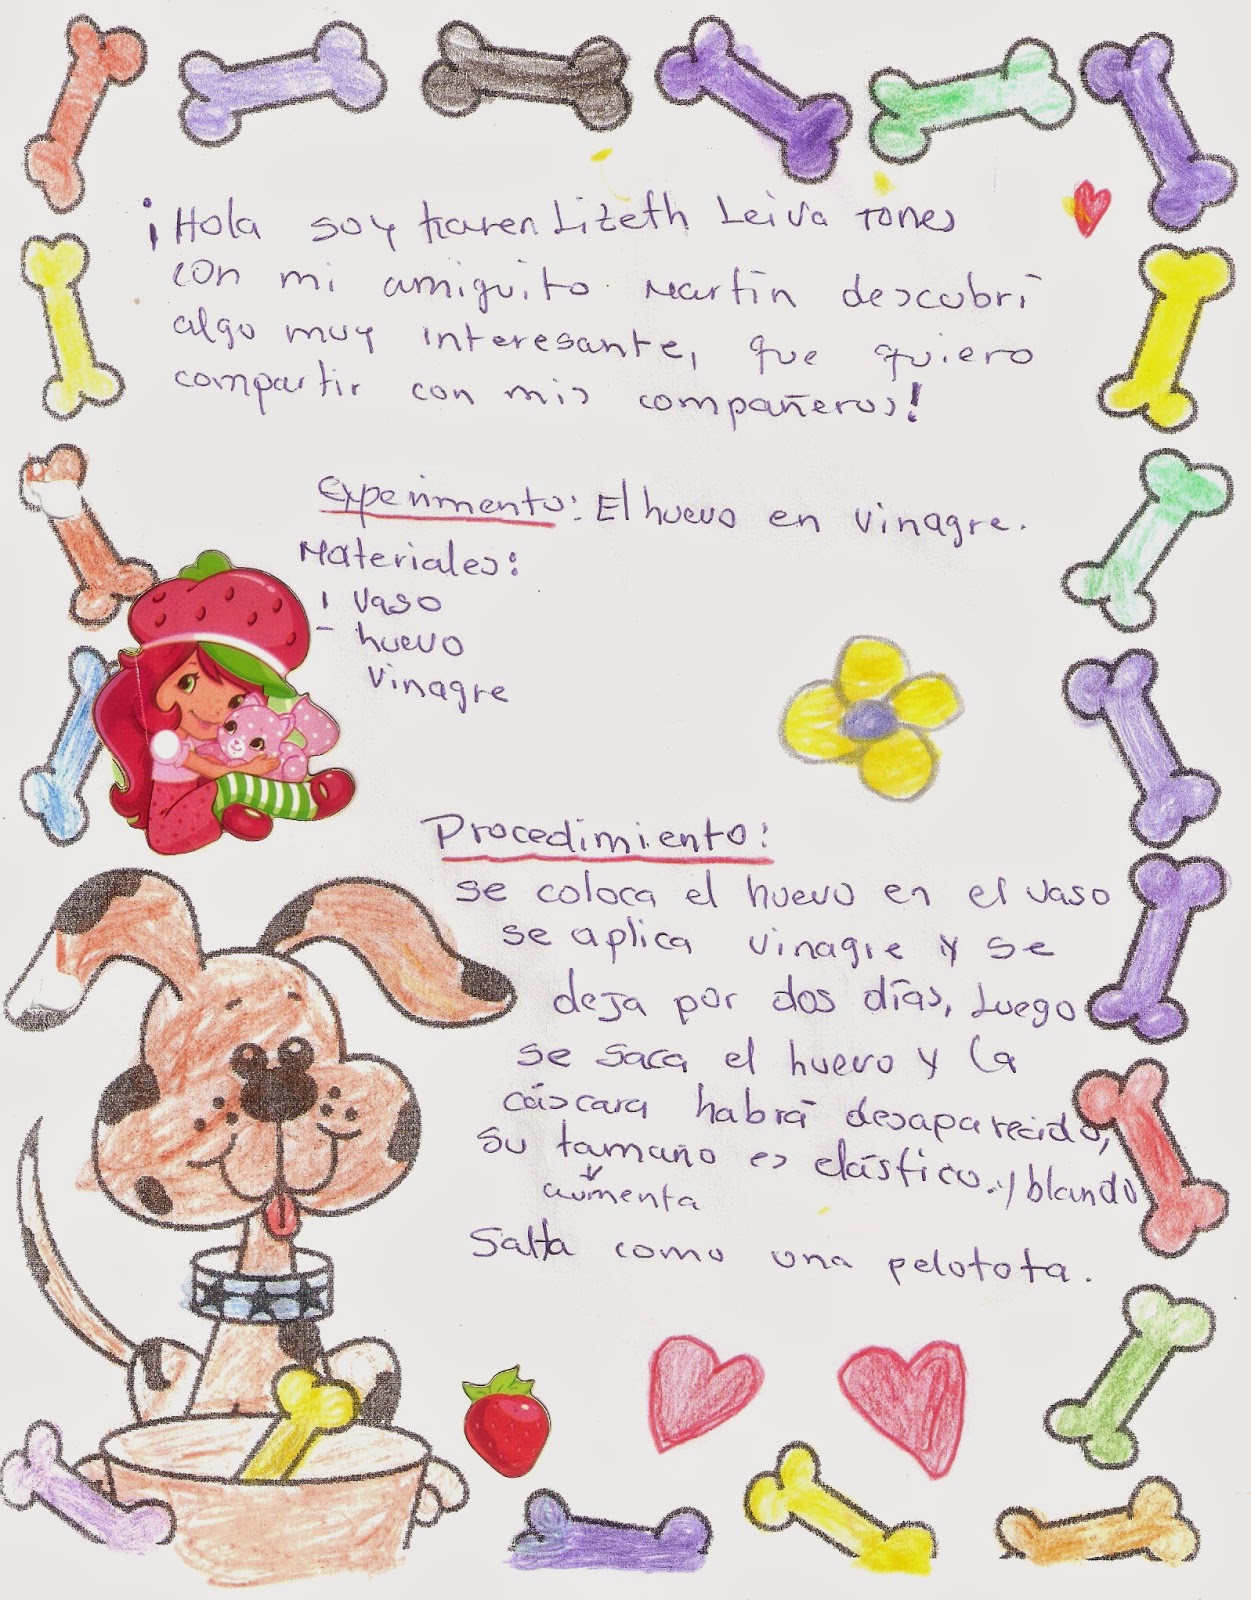 ¡Hola soy Karen Lizeth Leiva Torres
con mi amiguito Martín descubrí
algo muy interesante, que quiero
compartir con mis compañeros!
Experimento: El huevo en vinagre.
Materiales:
1 vaso
- huevo
vinagre
Procedimiento:
se coloca el huevo en el vaso
se aplica vinagre y se
deja por dos días, Luego
se saca el huevo y la
cáscara habrá desaparecido,
su tamaño es elástico. y blando
aumenta
Salta como una pelotota.